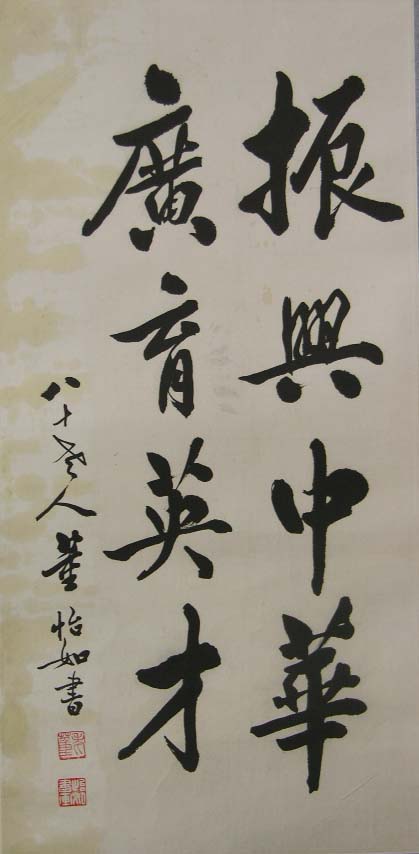 振興中華
廣育英才
八十老人董怡如書